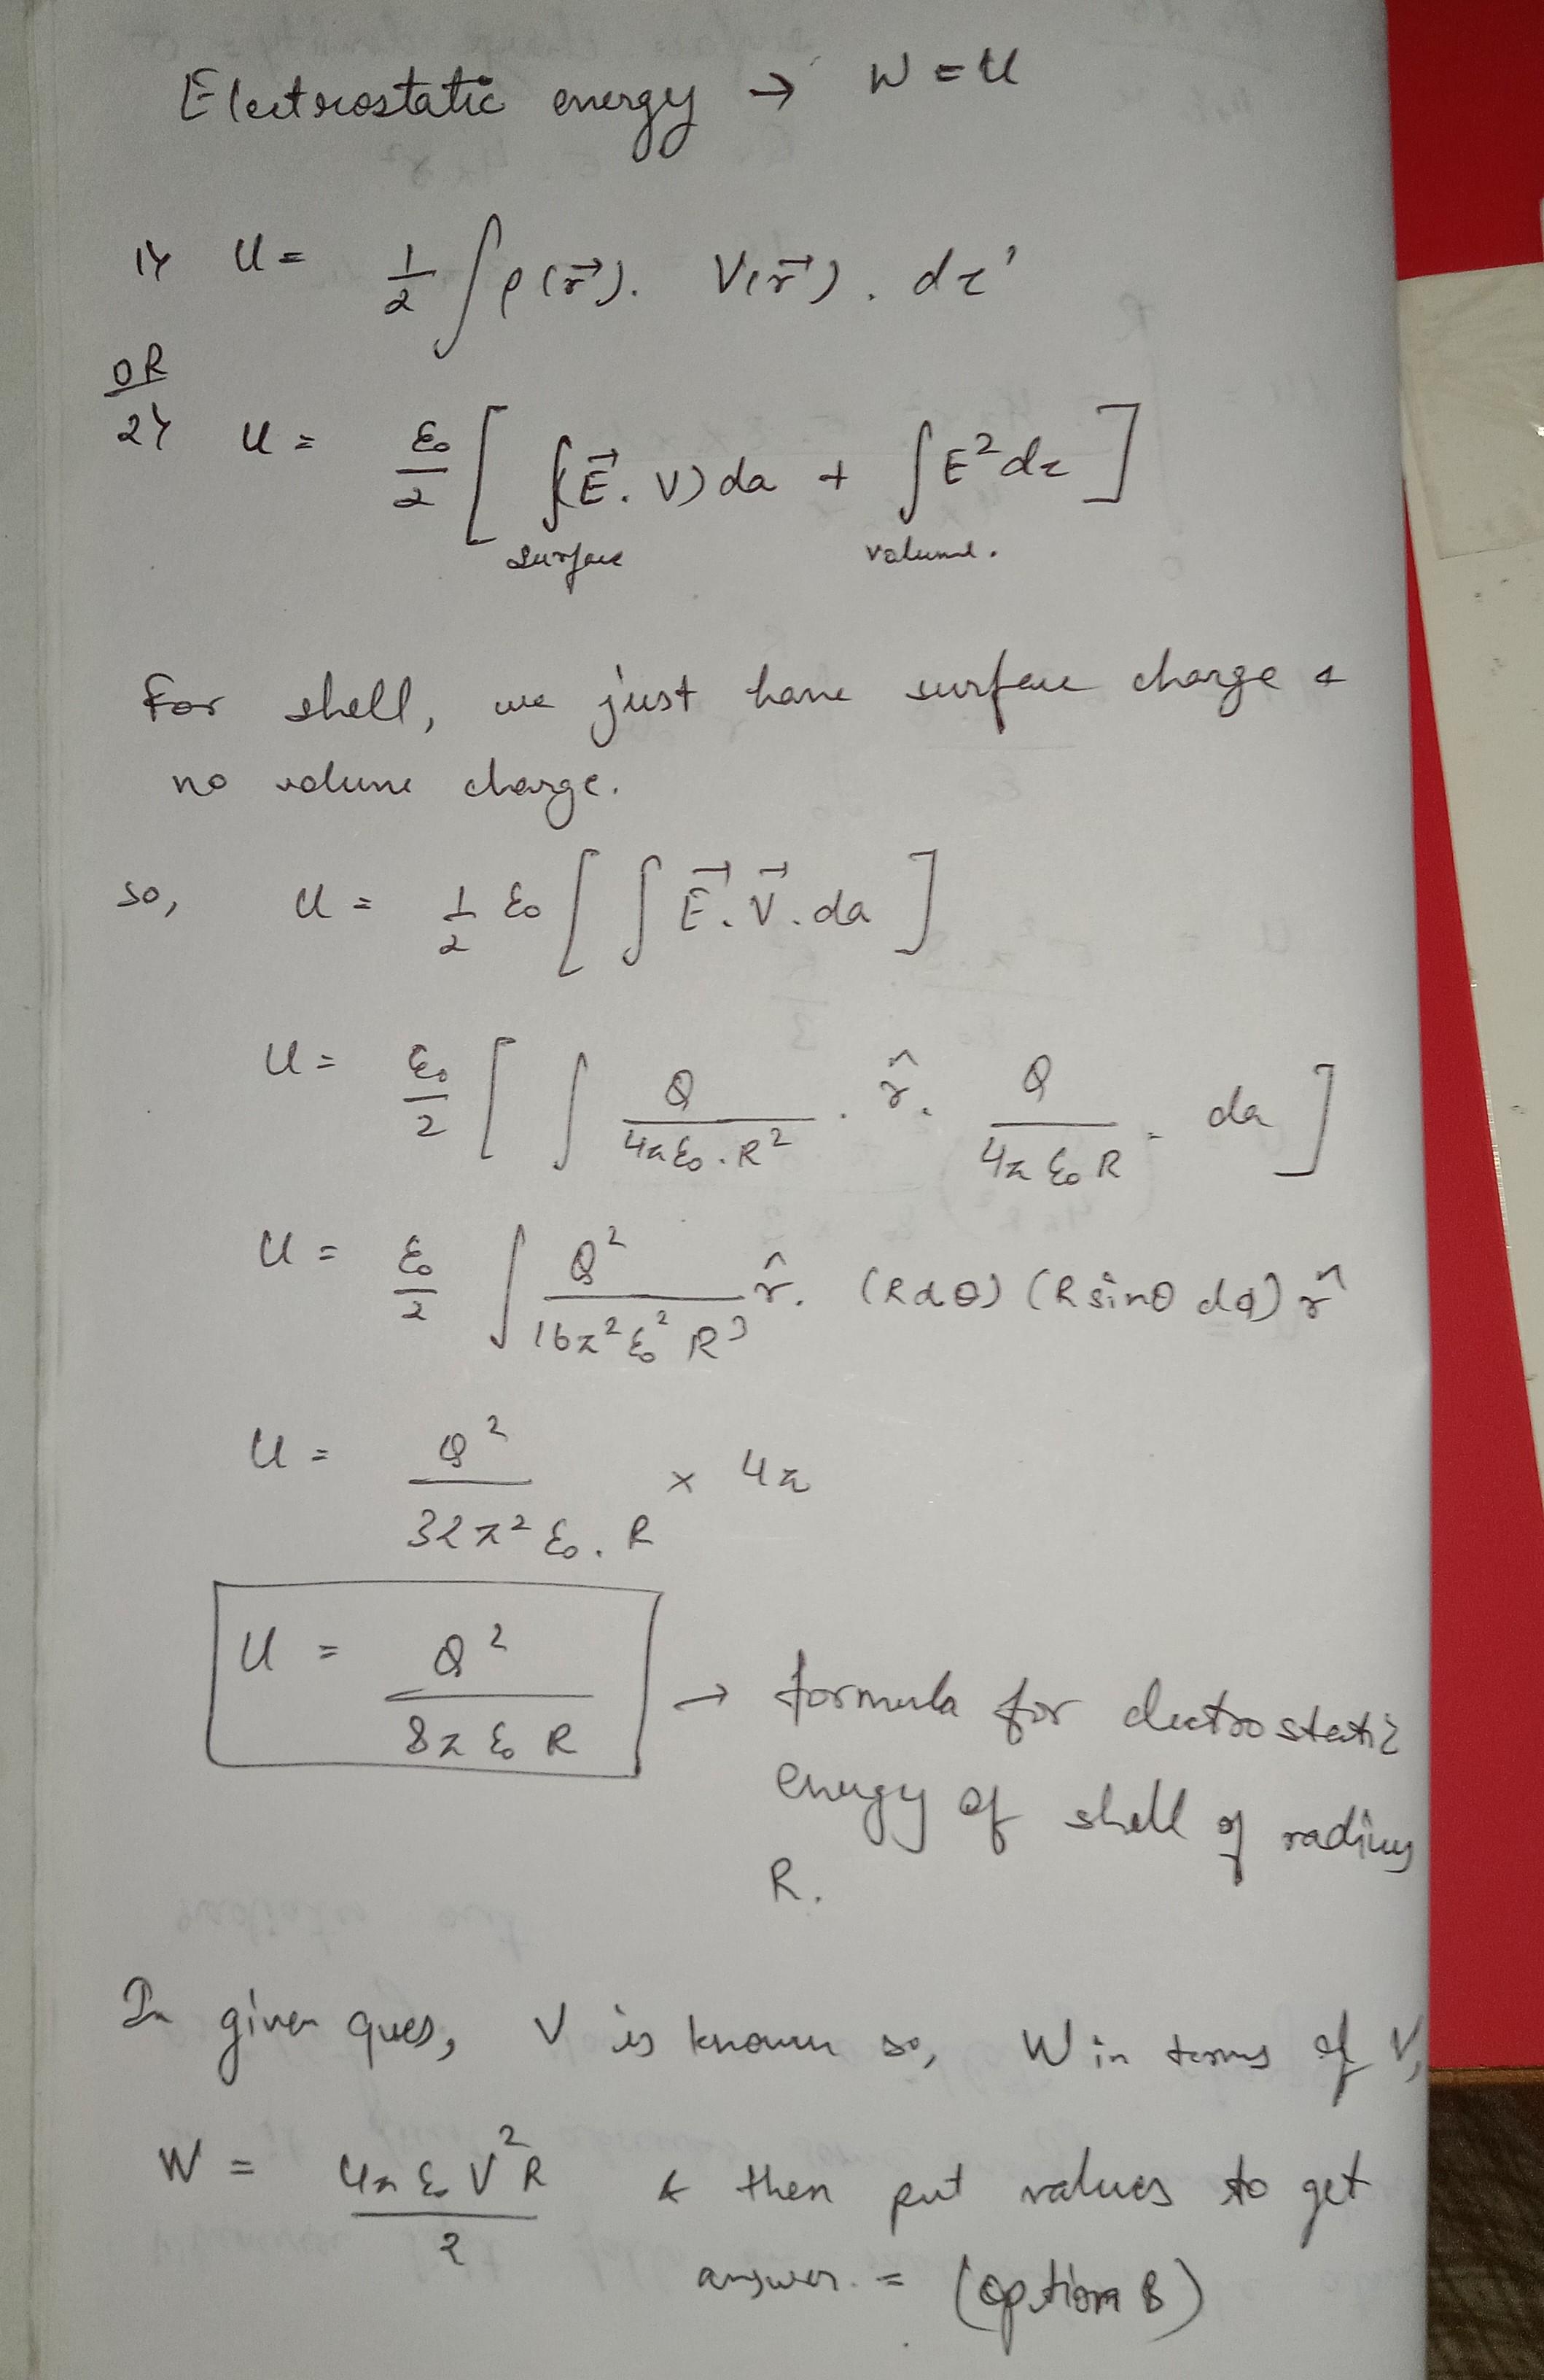 Electrostatic energy → W = U
1) U = 1/2 ∫ρ(r⃗). V(r⃗). dτ'
OR
2) U = ε₀/2 [ ∫(E⃗. V) da + ∫E² dτ ]
surface volume.
For shell, we just have surface charge &
no volume charge.
so, U = 1/2 ε₀ [ ∫ E⃗. V⃗. da ]
U = ε₀/2 [ ∫ Q/(4πε₀. R²) . r̂. Q/(4πε₀R) . da ]
U = ε₀/2 ∫ Q²/(16π²ε₀²R³) r̂. (Rdθ) (R sinθ dφ) r̂
U = Q²/(32π²ε₀. R) × 4π
U = Q²/(8πε₀R) → formula for electrostatic
energy of shell of radius
R.
In given ques, V is known so, W in terms of V,
W = 4πε₀V²R/2 & then put values to get
answer. = (option B)